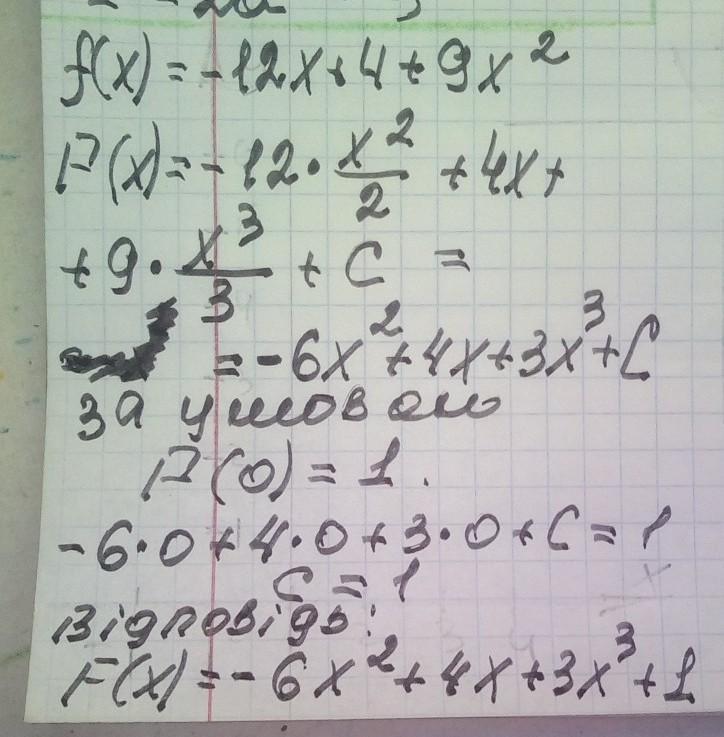 f(x) = -12x + 4 + 9x²
F(x) = -12 · x²/2 + 4x +
+ 9 · x³/3 + C =
= -6x² + 4x + 3x³ + C
за умовою
F(0) = 1.
-6·0 + 4·0 + 3·0 + C = 1
C = 1
Відповідь:
F(x) = -6x² + 4x + 3x³ + 1